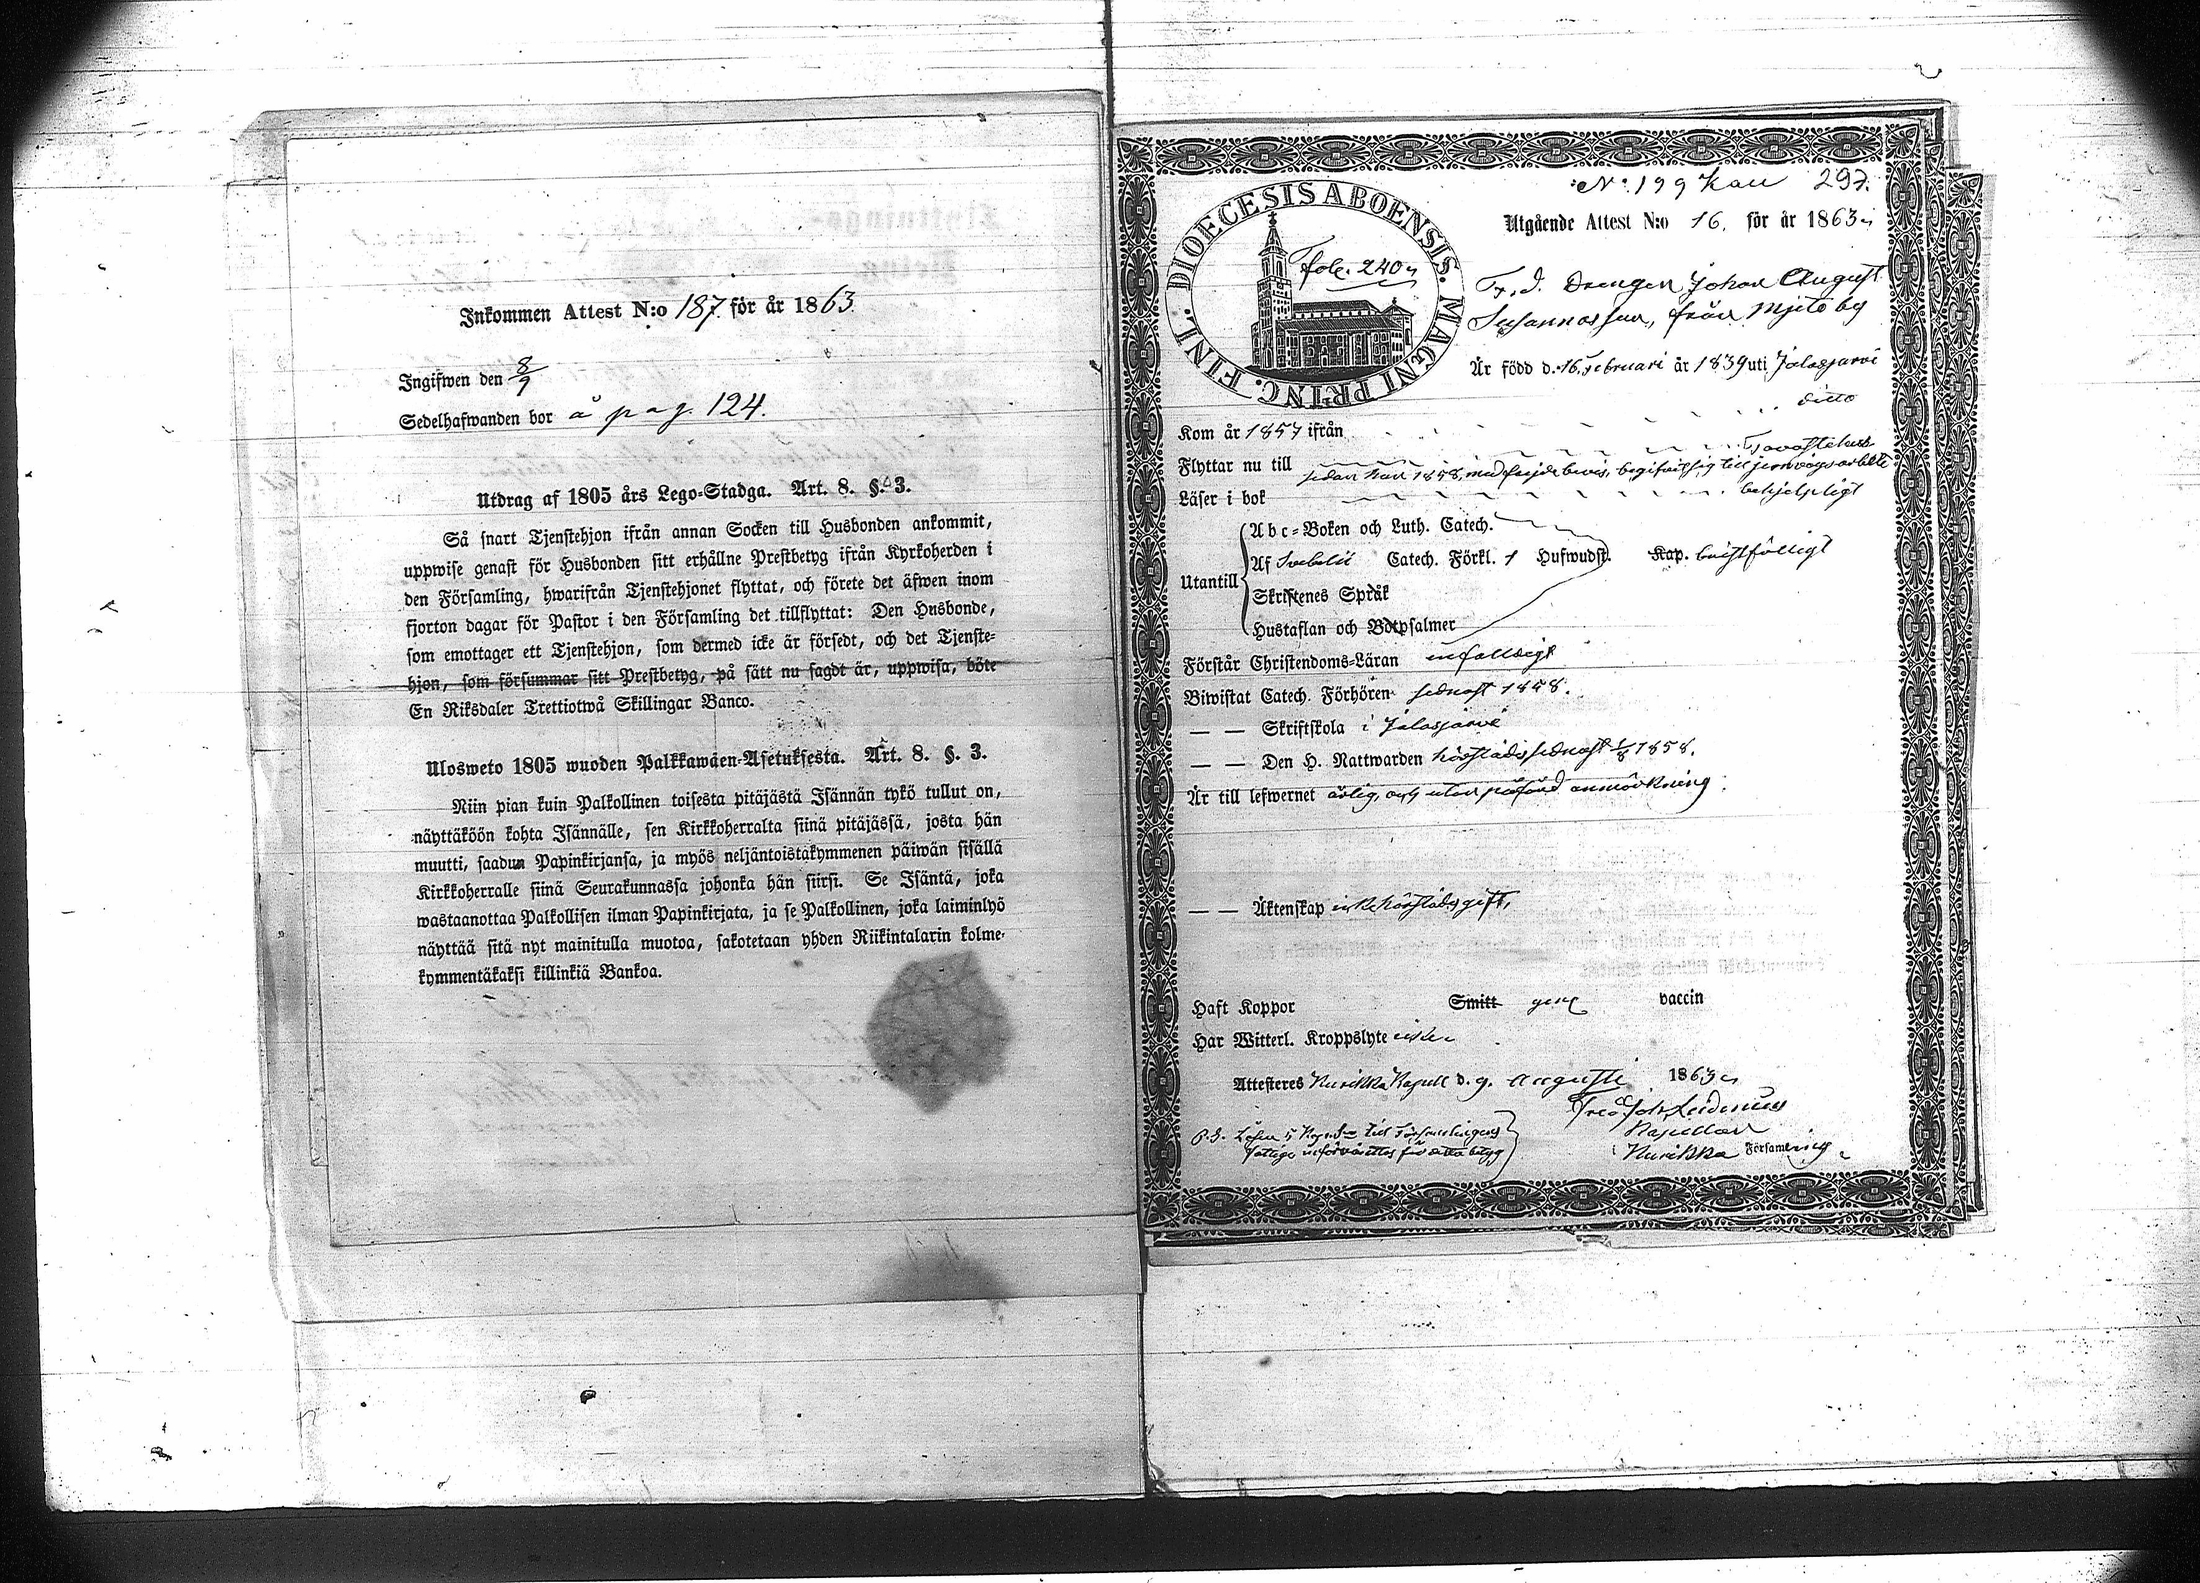 Inkommen Attest N:o 187 för år 1863.
Ingifwen den 8/9
Sedelhafwanden bor å pag. 124.
Utdrag af 1805 års Lego-Stadga. Art. 8. §. 3.
Så snart Tjenstehjon ifrån annan Socken till Husbonden ankommit,
uppwise genast för Husbonden sitt erhållne Prestbetyg ifrån Kyrkoherden i
den Församling, hwarifrån Tjenstehjonet flyttat, och förete det äfwen inom
fjorton dagar för Pastor i den Församling det tillflyttat: Den Husbonde,
som emottager ett Tjenstehjon, som dermed icke är försedt, och det Tjenste-
hjon, som försummar sitt Prestbetyg, på sätt nu sagdt är, uppwisa, böte
En Riksdaler Trettiotwå Skillingar Banco.
Ulosweto 1805 wuoden Palkkawäen-Asetuksesta. Art. 8. §. 3.
Niin pian kuin Palkollinen toisesta pitäjästä Isännän tykö tullut on,
näyttäköön kohta Isännälle, sen Kirkkoherralta siinä pitäjässä, josta hän
muutti, saadun Papinkirjansa, ja myös neljäntoistakymmenen päiwän sisällä
Kirkkoherralle siinä Seurakunnassa johonka hän siirsi. Se Isäntä, joka
wastaanottaa Palkollisen ilman Papinkirjata, ja se Palkollinen, joka laiminlyö
näyttää sitä nyt mainitulla muotoa, sakotetaan yhden Riikintalarin kolme-
kymmentäkaksi killinkiä Bankoa.
N:o 199 Kau 297.
DIOECESIS ABOENSIS. MAGNI PRINC. FINL.
Fol. 240
Utgående Attest N:o 16. för år 1863
F. d. Drengen Johan August
Susannasson, från Mjeto by
Är född d. 16 Februari år 1839 uti Jalasjärvi
Kom år 1857 ifrån ditto
Flyttar nu till Tavastehus
sedan han 1858, med frejdebevis, begifvit sig till jernvägsarbete
Läser i bok behjelpligt
Utantill
Abc-Boken och Luth. Catech.
Af Svebelii Catech. Förkl. 1 Hufwudst. Kap. bristfälligt
Skriftenes Språk
Hustaflan och Botpsalmer
Förstår Christendoms-Läran enfaldigt
Biwistat Catech. Förhören sednast 1858.
— — Skriftskola i Jalasjärvi
— — Den H. Nattwarden härstädes sednast 1858.
Är till lefwernet ärlig, och utan påförd anmärkning.
— — Äktenskap icke härstädes gift,
Haft Koppor Smitt gene vaccin
Har Witterl. Kroppslyte icke
Attesteres Kurikka Kapell d. 9. Augusti 1863
Kapellan
i Kurikka Församling